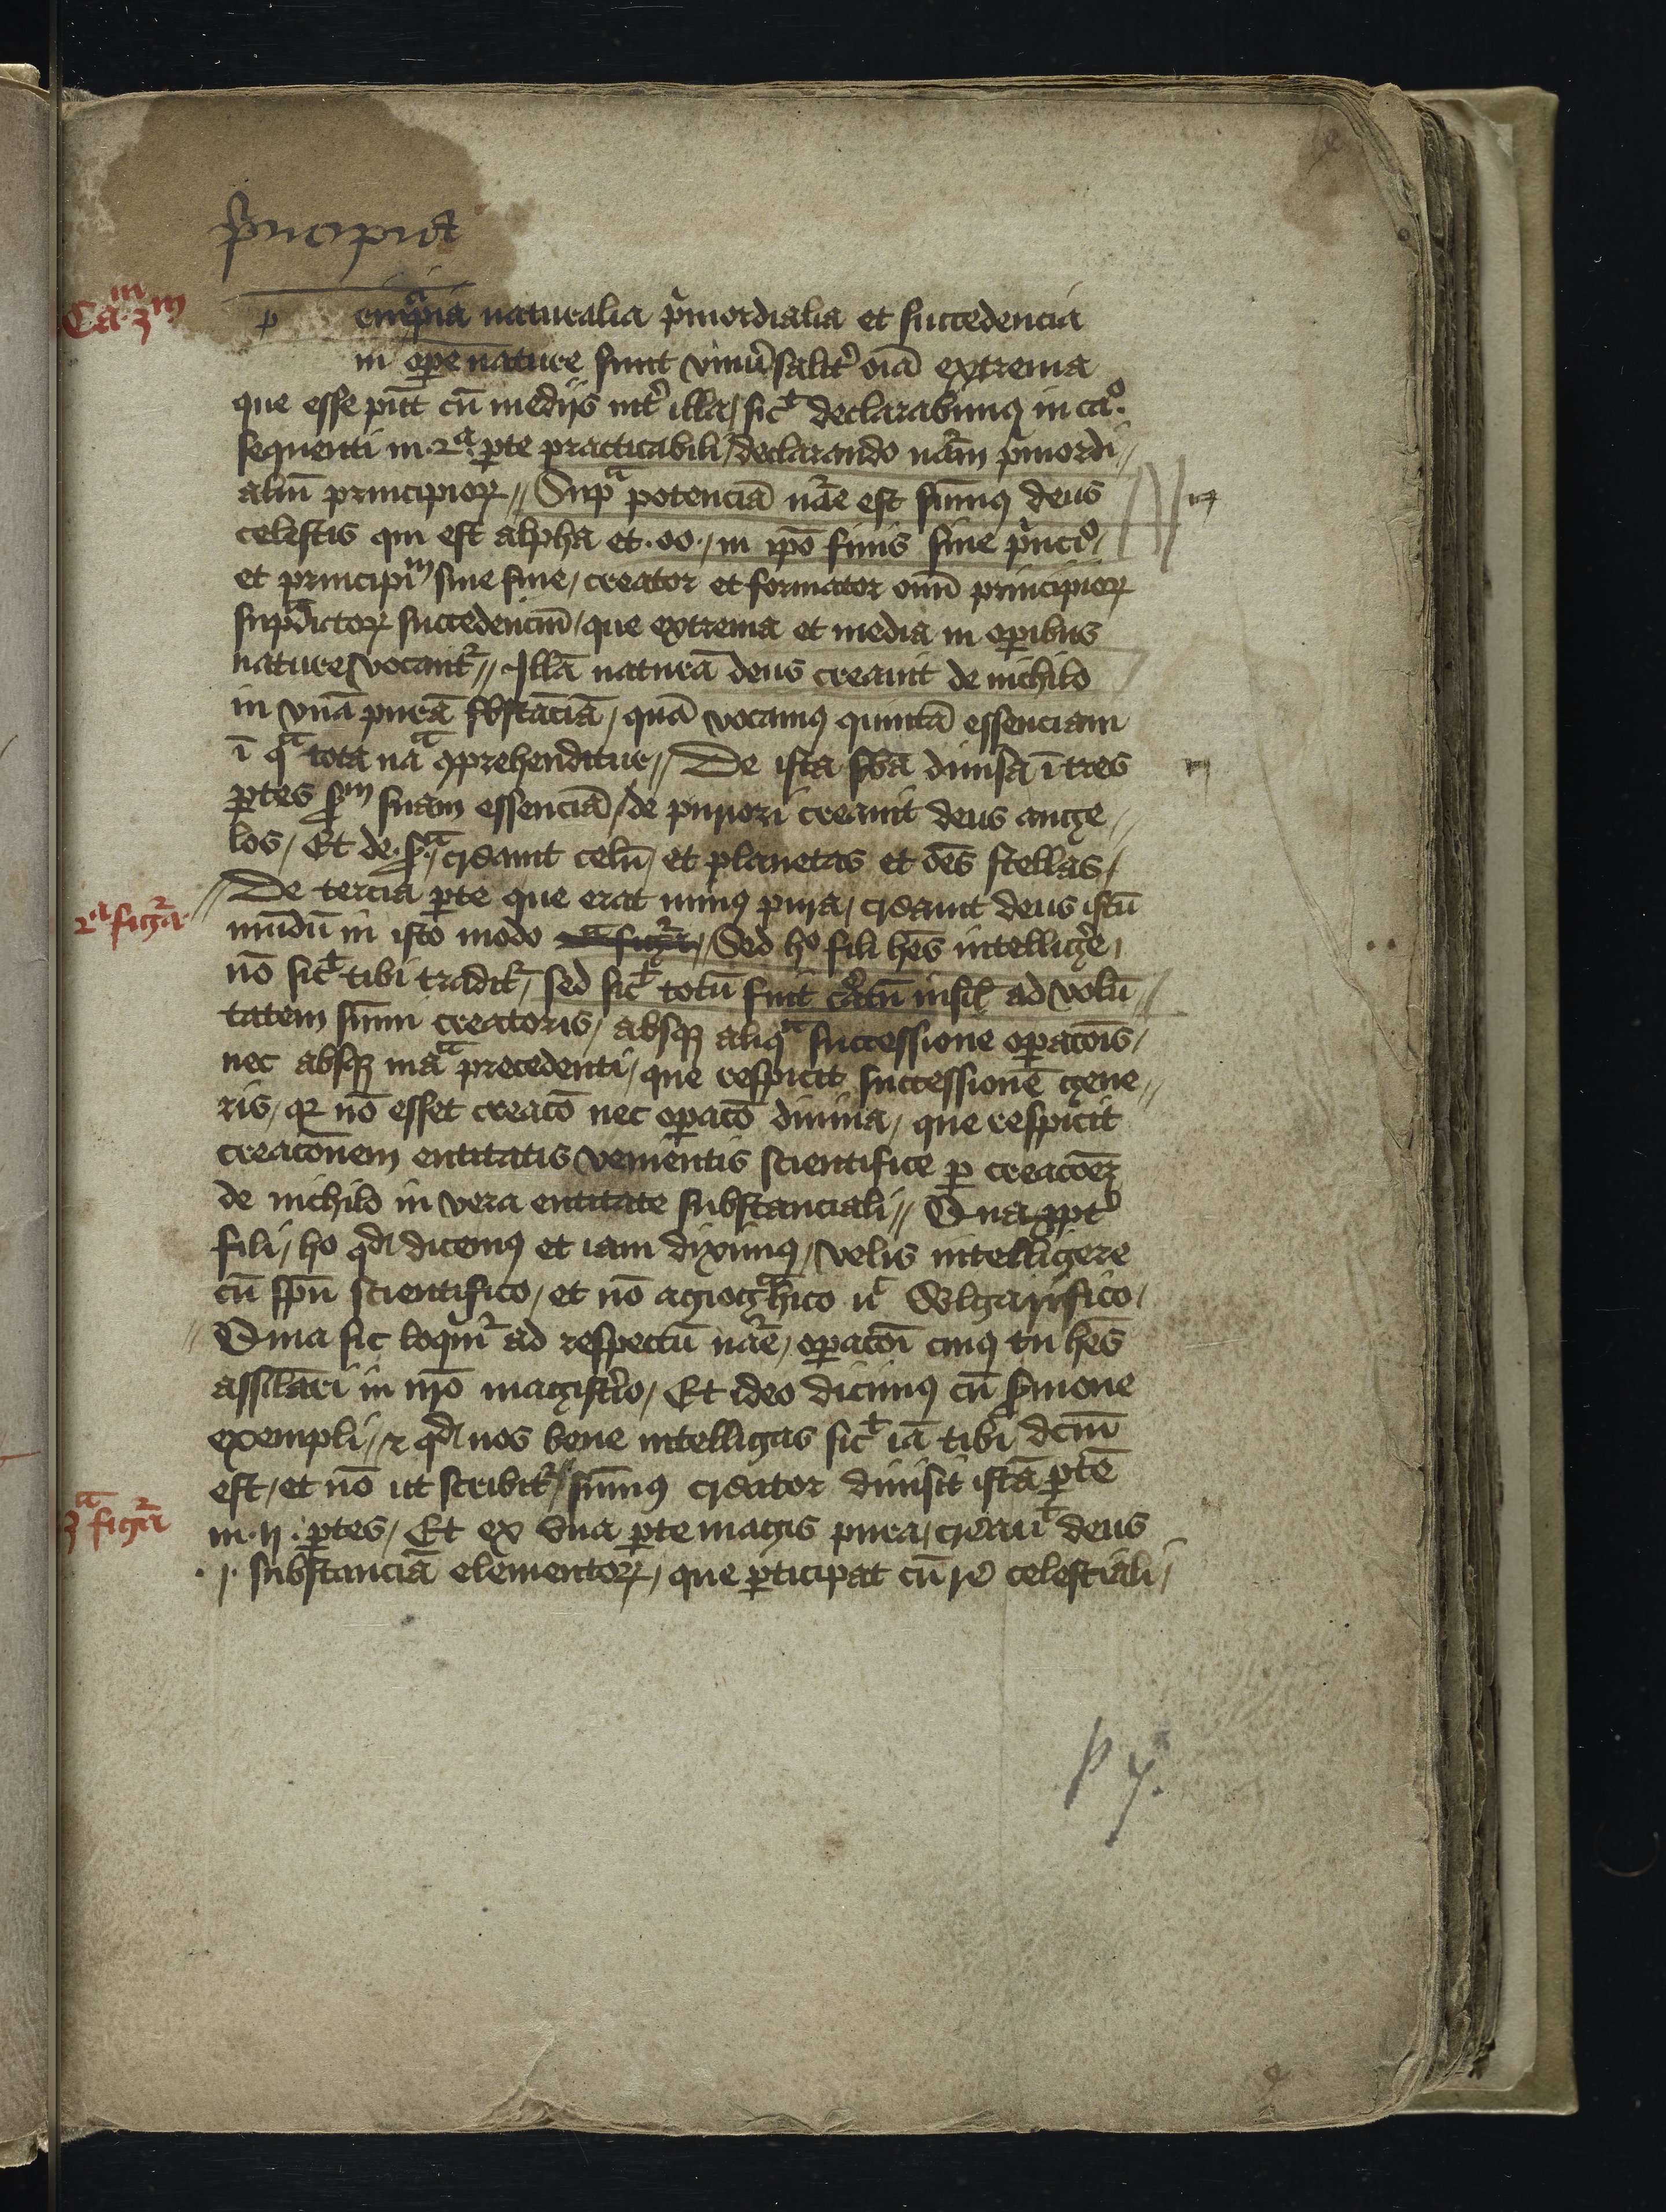 p̄ncipia
Ca. 3m
p emp̄ia naturalia p̄mordialia et succedencia
in op̄e nature sunt vniu̕salit̕ oīa extrema
que esse p̄nt cū medijs int̕ illa / sicᵗ declarabimꝰ in caᵒ.
sequenti in .2ᵃ. ꝑte practicabili / declarando nām p̄mordi //
aliū principioꝝ // Supᵃ potenciā nāe est sūmꝰ deus
celestis qui est alpha et .oo. / in ip̄o finis sine p̄nciᵒ /
et principiᵐ sine fine / creator et formator oīm principioꝝ
sup̄dictoꝝ succedenciū / que extrema et media in oꝑibus
nature vocant̕ // Illā naturā deus creauit de nichilo
in vnā purā sb̄stāciā / quā vocamꝰ quintā essenciam
ī qᵃ tota nāᵃ ꝯprehenditur // De ista sb̄a diuisa ī tres
ꝑtes s̄ᵐ suam essenciā / de puriori creauit deus ange //
los / Et de .s̄ᵃ. creauit celū / et planetas et oēs stellas /
2ᵃ figā
// De tercia ꝑte que erat minꝰ pura / creauit deus istū
mūdū in isto modo / Sed hᵒ fili hēs intellig̕e /
nō sicᵗ tibi tradit̕ / sed sicᵗ totū fuit c̕atū insil̄ ad volū //
tatem sūmi creatoris / absqꝫ aliqᵃ successione oꝑacōis /
nec absqꝫ māᵃ precedenti / que respicit successionē gene //
ris / qꝛ nō esset creacō nec oꝑacō diuina / que respicit
creacōnem entitatis venientis scientifice ꝑ creacōeꝫ
de nichilo in vera entitate substanciali // Qua ꝓpt̕
fili / hᵒ qđ dicemꝰ et iam diximꝰ / velis intelligere
cū sp̄u scientifico / et nō agiogᵃhico uᶜ vulgarifico /
// Quia sic loqim̕ ad respectū nāe / oꝑacōi cuiꝰ tu hēs
assilāri in nr̄o magist̕io / Et ideo dicimꝰ cū s̄mone
exempli // ⁊ qđ nos bene intelligas sicᵗ iā tibi dcm̄
est / et nō ut scribit̕ // sūmꝰ creator diuisit istā ꝑtē
3ᵃ figā
in .ij. ꝑtes / Et ex vna ꝑte magis pura / creauᵗ deus
.j. substanciā elementoꝝ / que ꝑticipat cū re celestiali /